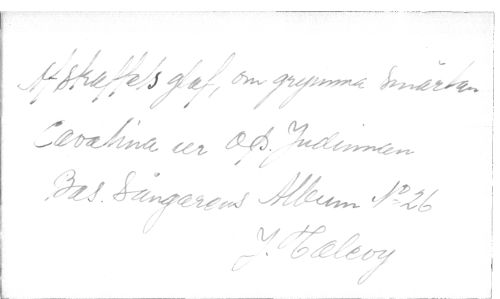 straffets glaf, om grymma smärtan
Cavatina ur Op. Judinnan
Bas. Sångarens Album No 26
J. Halevy